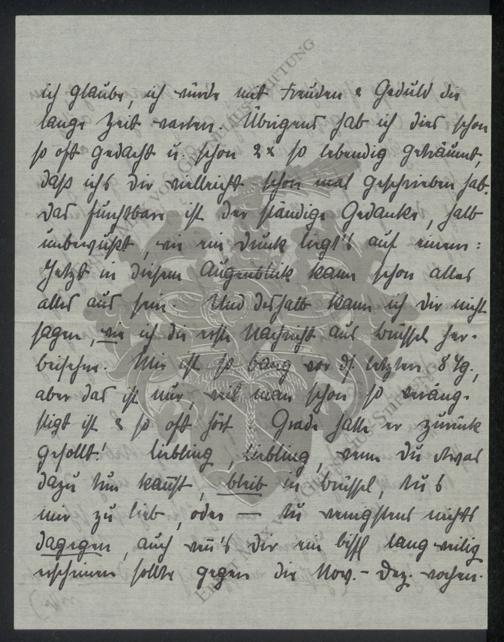 ich glaube, ich würde mit Freuden & Geduld die
lange Zeit warten. Übrigens hab ich dies schon
so oft gedacht u. schon 2x so lebendig geträumt,
daß ichs dir vielleicht schon mal geschrieben hab.
das furchtbare ist der ständige Gedanke, halb
unbewußt, wie ein Druck liegt's auf einem:
Jetzt in diesem Augenblick kann schon alles
alles aus sein. Und deshalb kann ich dir nicht
sagen, wie ich die erste Nachricht aus Brüssel her-
beisehne. Mir ist so bang vor d. letzten 8 Tg.,
aber das ist nur, weil man schon so veräng-
stigt ist & so oft hört Grade hatte er zurück
gesollt! Liebling, Liebling, wenn Du etwas
dazu tun kannst, bleib in Brüssel, tu's
mir zu lieb, oder — tu wenigstens nichts
dagegen, auch wenn's Dir ein bißl langweilig
erscheinen sollte gegen die Nov.- Dez. wochen.